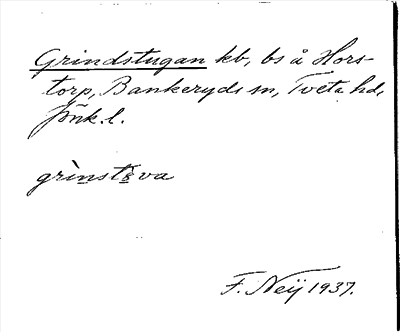 Grindstugan kb, bs å Hors-
torp, Bankeryds sn, Tveta hd,
Jönk. l.
grìnstꞩva
F. Neij 1937.